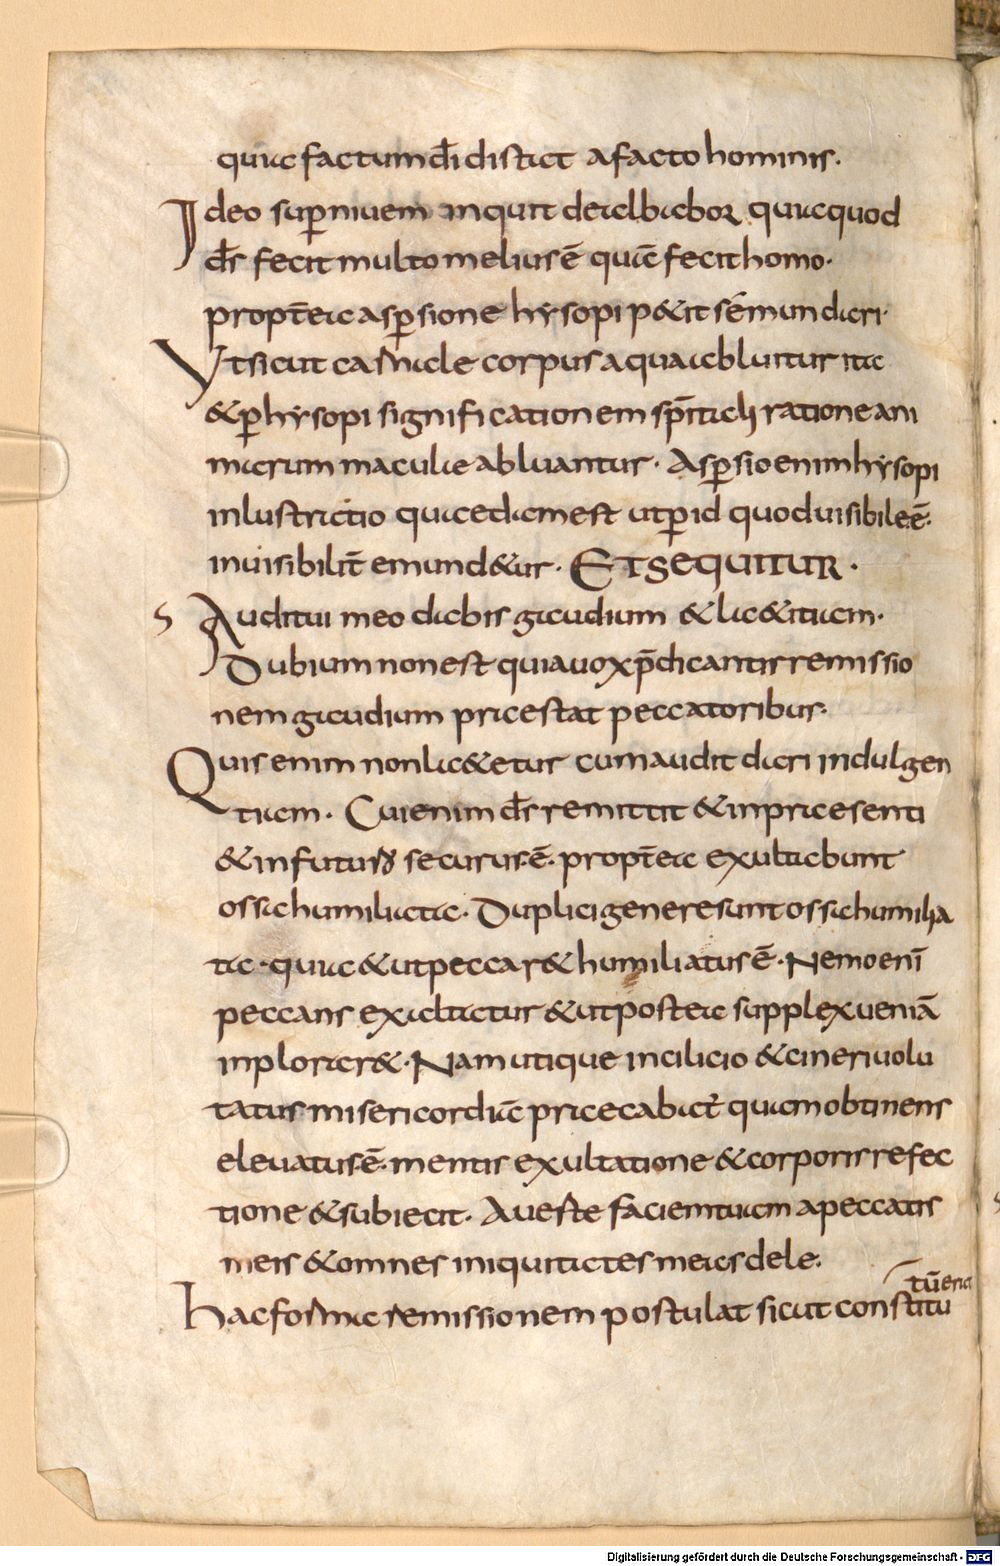 quia factum d̄i distat a facto hominis.
Ideo sup̱ niuem inquit dealbabor quia quod
d̄s fecit multo melius ē quā fecit homo.
propt̄ea asp̱sione hysopi p&it sē mundari.
Vt sicut carnale corpus aqua abluitur ita
& p̱ hysopi significationem sp̄itali ratione ani
marum maculae abluantur. Asp̱sio enim hysopi
inlustratio quaedam est ut p̱ id quod uisibile ē.
inuisibilit̄ emund&ur. ET SEQUITUR.
S Auditui meo dabis gaudium & la&itiam.
Dubium non est quia uox p̄dicantis remissio
nem gaudium praestat peccatoribus.
Quis enim non la&etur cum audit dari indulgen
tiam. Cui enim d̄s remittit & in praesenti
& in futuro securus ē. propt̄ea exultabunt
ossa humiliata. Duplici genere sunt ossa humilia
ta. quia & ut peccar& humiliatus ē. Nemo enī
peccans exaltatur & ut postea supplex ueniā
inplorar&. Nam utique in cilicio & cineri uolu
tatus misericordiā praecabat̄ quam obtinens
eleuatus ē. mentis exultatione & corporis refec
tione & subiecit. Auerte faciem tuam a peccatis
meis & omnes iniquitates meas dele.
tūera
hac forma remissionem postulat sicut constitu
Digitalisierung gefördert durch die Deutsche Forschungsgemeinschaft - DFG